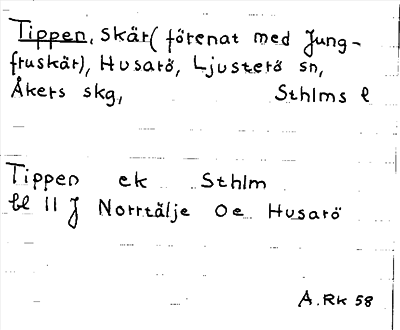 Tippen, skär( förenat med Jung-
fruskär), Husarö, Ljusterö sn,
Åkers skg, Sthlms l
Tippen ek Sthlm
bl 11 J Norrtälje Oe Husarö
A.Rk 58